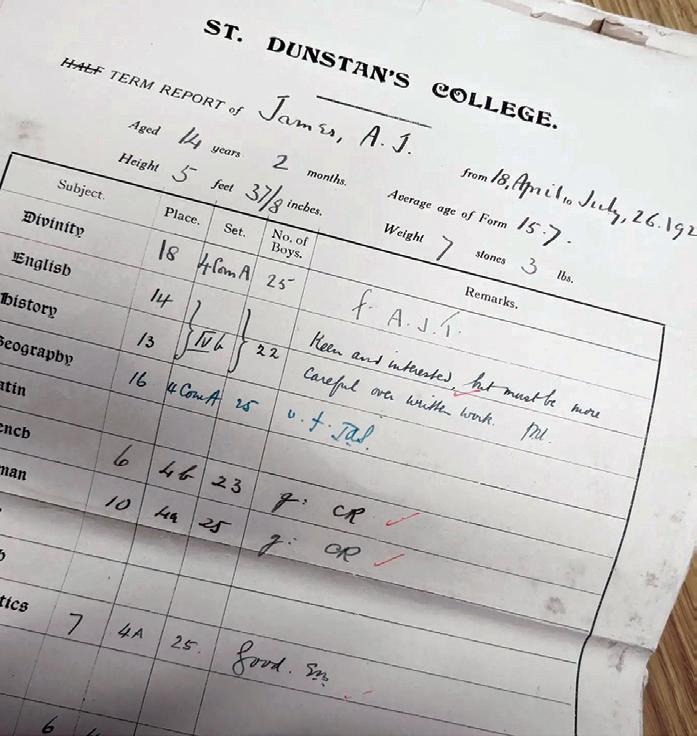 ST. DUNSTAN'S COLLEGE.
HALF TERM REPORT of James, A.J.
Aged 14 years 2 months. from 18, April, to July, 26. 192
Height 5 feet 3 7/8 inches. Average age of Form 15.7.
Weight 7 stones 3 lbs.
Subject. Place. Set. No. of Boys. Remarks.
Divinity 18 4ComA 25 f. A.J.T.
English 14
History 13 IVb 22 Keen and interested, but must be more
careful over written work.
eography 16 4ComA 25 v.f.
atin
ench 6 4b 23 g: CR
man 10 4a 25 g: CR
tics 7 4A 25. good.
6